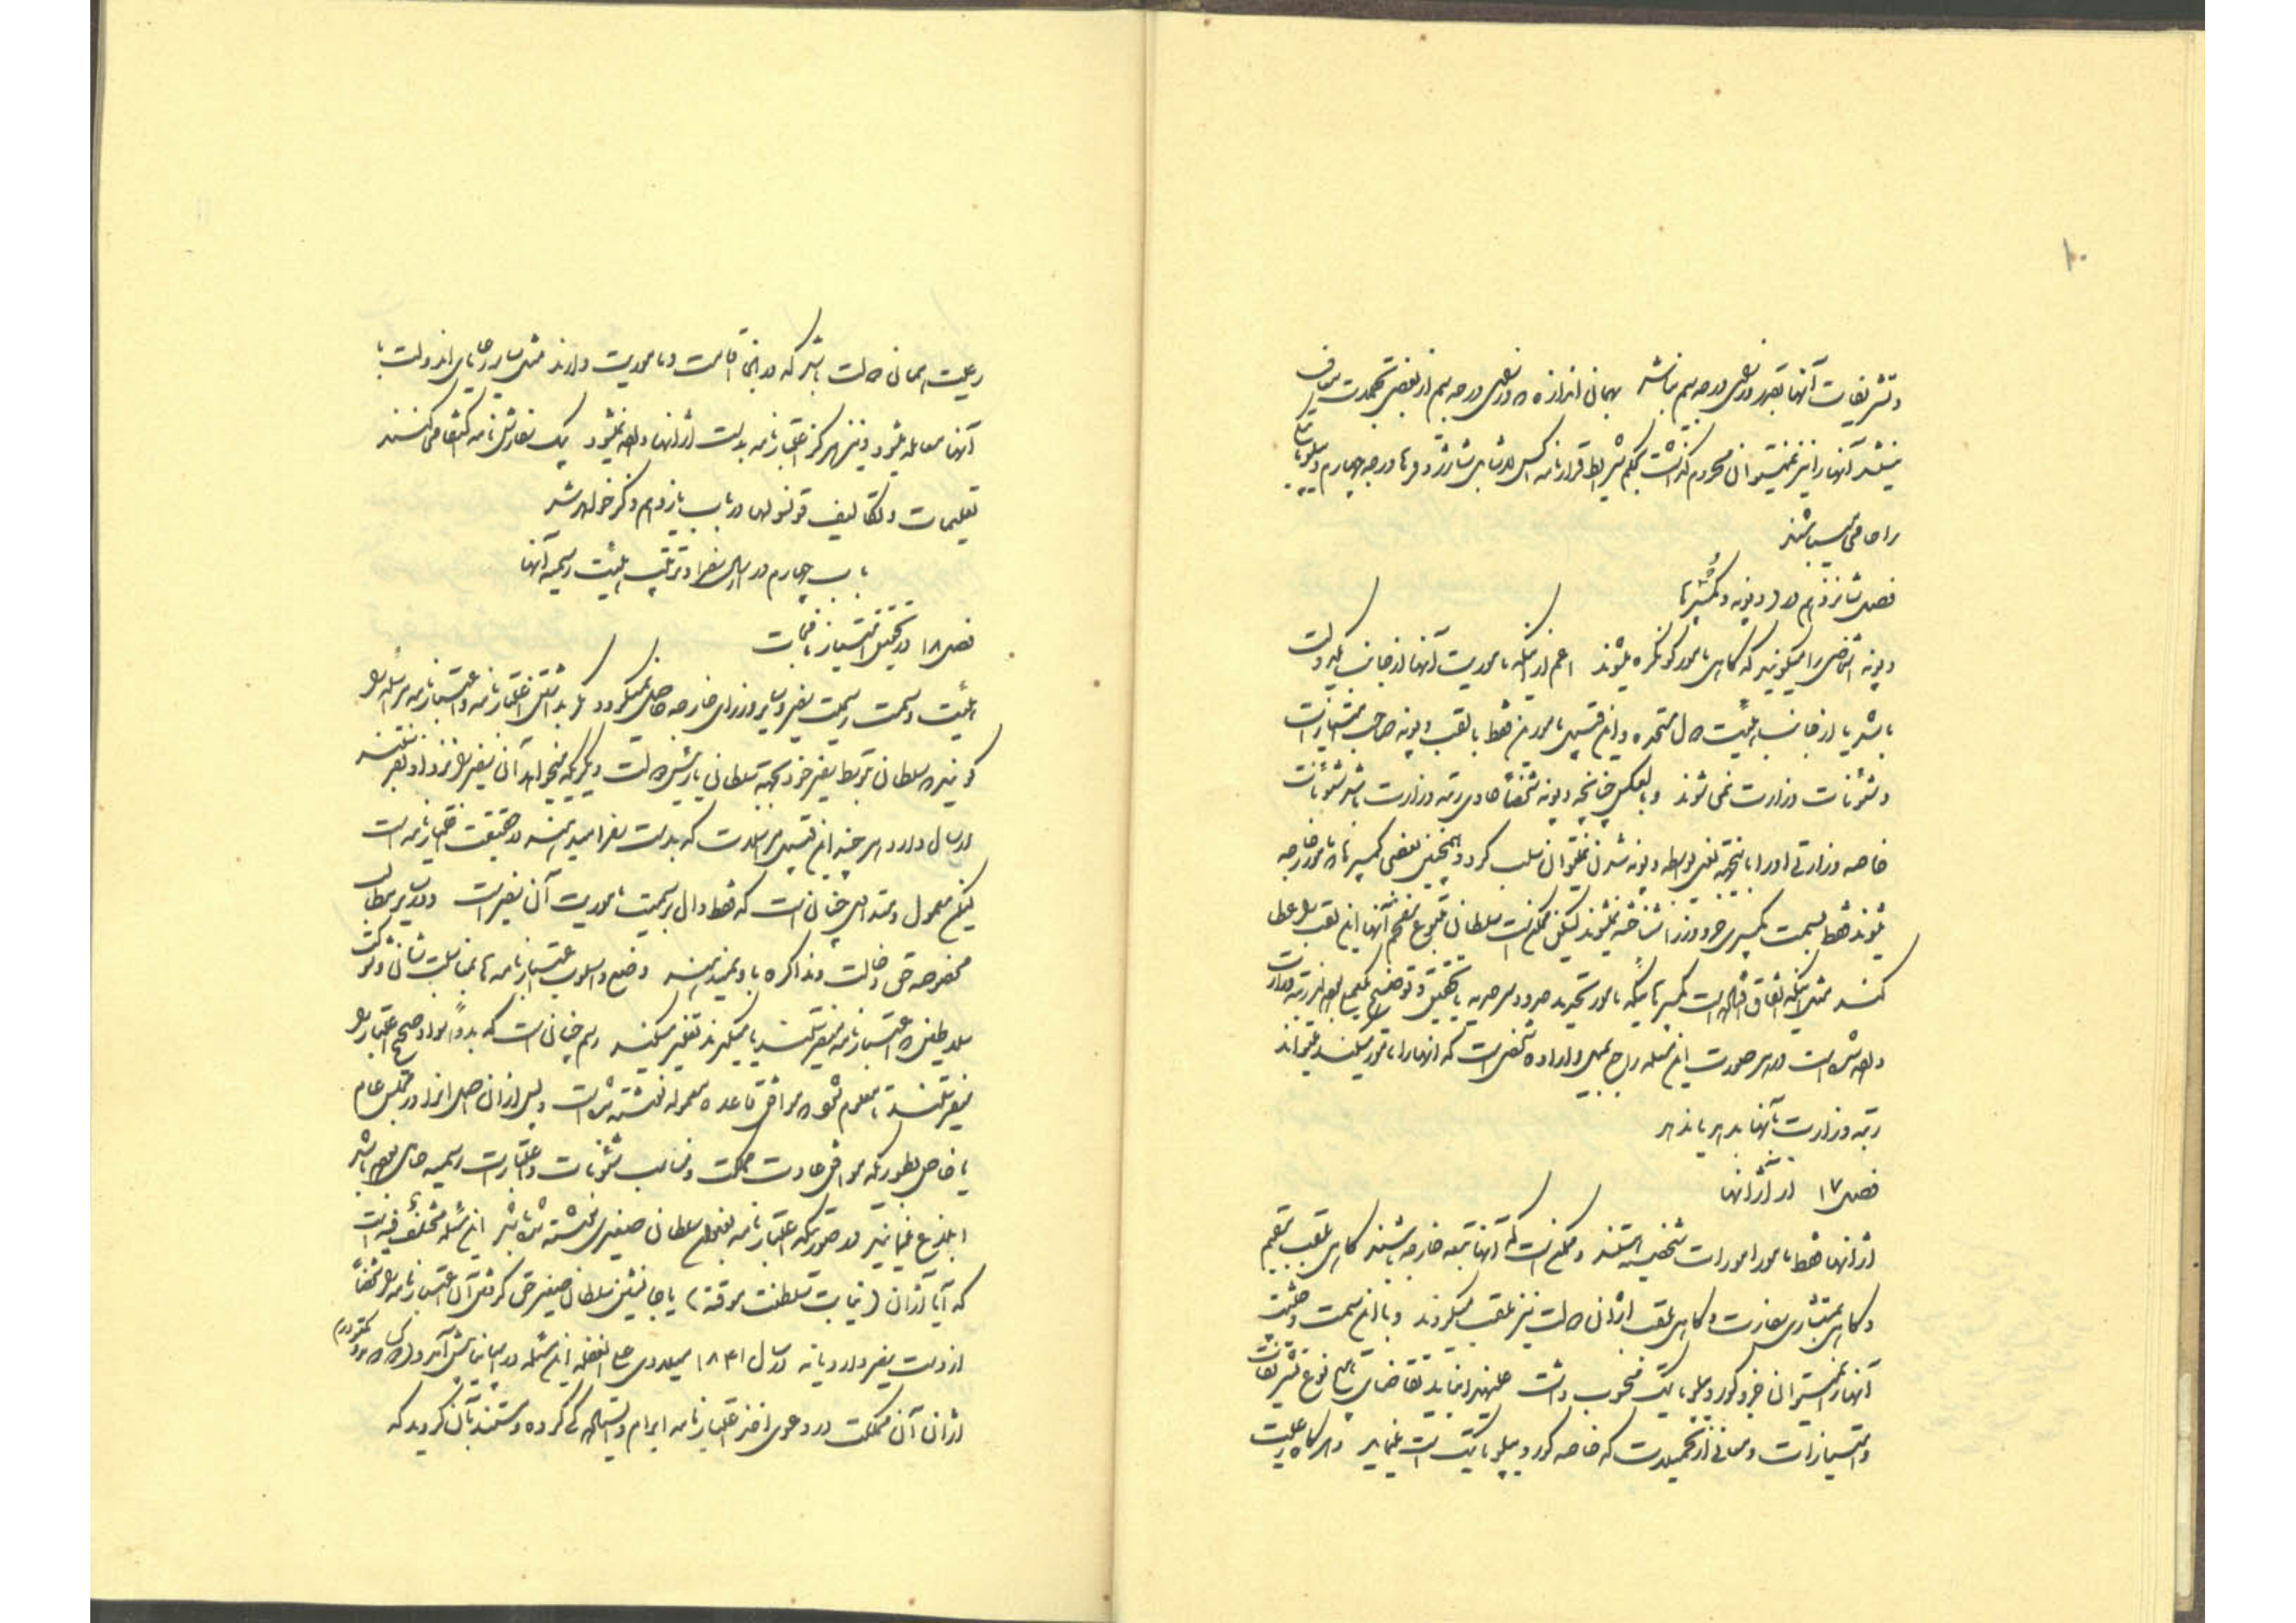 ۱۰
و تشریفات آنها بقدر وزرای درجه سیم نباشد بهمان اندازه که وزرای درجه سیم از بعضی تجملات معاف
میشند آنها را نیز نمیتوان محروم گذاشت بحکم شرایط قرارنامه شارژدفرها درجه چهارم
را حامی میباشند
فصل شانزدهم در دپوته و کمیسرها
دپوته اشخاصی را میگویند که گاهی مامور کونگره میشوند اعم از اینکه ماموریت آنها از جانب یک دولت
باشد یا از جانب هیئت دول متحده و این قسم مامورین فقط با لقب دپوته صاحب امتیازات
و شئونات وزارت نمی شوند و بالعکس چنانچه دپوته شخصاً حاوی رتبه وزارت باشد شئونات
خاصه وزارتی او را بواسطه دپوته شدن نمیتوان سلب کرد و همچنین بعضی کمیسرها که مامور خارجه
میشوند فقط بسمت کمیسری جزو وزرا شناخته نمیشوند لیکن ممکن است سلطان متبوع مفخم آنها این لقب را عطا
کند مثل اینکه اتفاق افتاده است کمیسرهائیکه مامور تحدید حدود و سرحدیه یا تحقیق و توضیح رتبه وزارت
داده شده است در هر صورت این مسئله راجع بمیل و اراده شخصی است که آنها را مامور میکند میتواند
رتبه وزارت بآنها بدهد یا ندهد
فصل ۱۷ در آژانها
آژانها فقط مامور امورات شخصیه هستند و ممکن است که آنها تبعه خارجه باشند گاهی بلقب مقیم
و گاهی بمستشاری سفارت و گاهی بلقب آژانی دولت نیز ملقب میگردند و با این سمت و حیثیت
آنها را نمیتوان جزو کوردیپلوماتیک محسوب داشت تقاضای نوع تشریفات
و امتیازات و معافی از تحمیلات که خاصه کوردیپلوماتیک است نمایند و هرگاه رعیت
رعیت همان دولت باشد که در آنجا اقامت و ماموریت دارند مثل سایر رعایای آن دولت با
آنها معامله میشود و نیز هرگز اعتبارنامه بدست آژانها داده نمیشود بیک سفارش نامه اکتفا می کنند
تعلیمات و تکالیف قونسولها در باب یازدهم ذکر خواهد شد
باب چهارم در ارسال سفرا و ترتیب هیئت رسمیه آنها
فصل ۱۸ در تحقیق امتیاز نیابت
هیئت و سمت رسمیت سفیر و سایر وزرای خارجه حاصل نمیگردد مگر بداشتن اختیارنامه و اعتبارنامه مراسله را
گویند که سلطان بتوسط سفیر خود بجهة سلطانی یا رئیس دولت دیگر که میخواهد آن سفیر را نزد او بفرستد
ارسال دارد هر چند این قسم مراسلات که بدست سفرا میدهند در حقیقت اختیارنامه است
لیکن معمول و متداول چنان است که فقط دال بر سمیت ماموریت آن سفیر است و در سایر مطالب
مخصوصه حق دخالت و مذاکره باو نمیدهند وضع و اسلوب اعتبارنامه ها بمناسبت شان و شوکت
سلاطینی که اعتبارنامه میفرستند یا میگیرند تغییر میکند رسم چنان است که بدواً سواد صحیح اعتبارنامه را
میفرستند تا معلوم شود که موافق قاعده معموله نوشته شده است و پس از آن اصل آنرا در مجلس عام
یا خاص بطوریکه موافق عادت مملکت و مناسب شئونات و اعتبارات رسمیه حامل باشد
ابلاغ مینمایند در صورتیکه اعتبارنامه بعنوان سلطان صغیری نوشته شده باشد این مسئله مختلف فیه است
که آیا آژان (نیابت سلطنت موقته) یا جانشین سلطان صغیر حق گرفتن آن اعتبارنامه را شخصاً
از دست سفیر دارد یا نه در سال ۱۸۴۱ میلادی علی الغفله این مسئله در اسپانیا پیش آمد
آژان آن مملکت در دعوی اخذ اعتبارنامه ابرام و ایستادگی کرده و مستند بآن گردید که